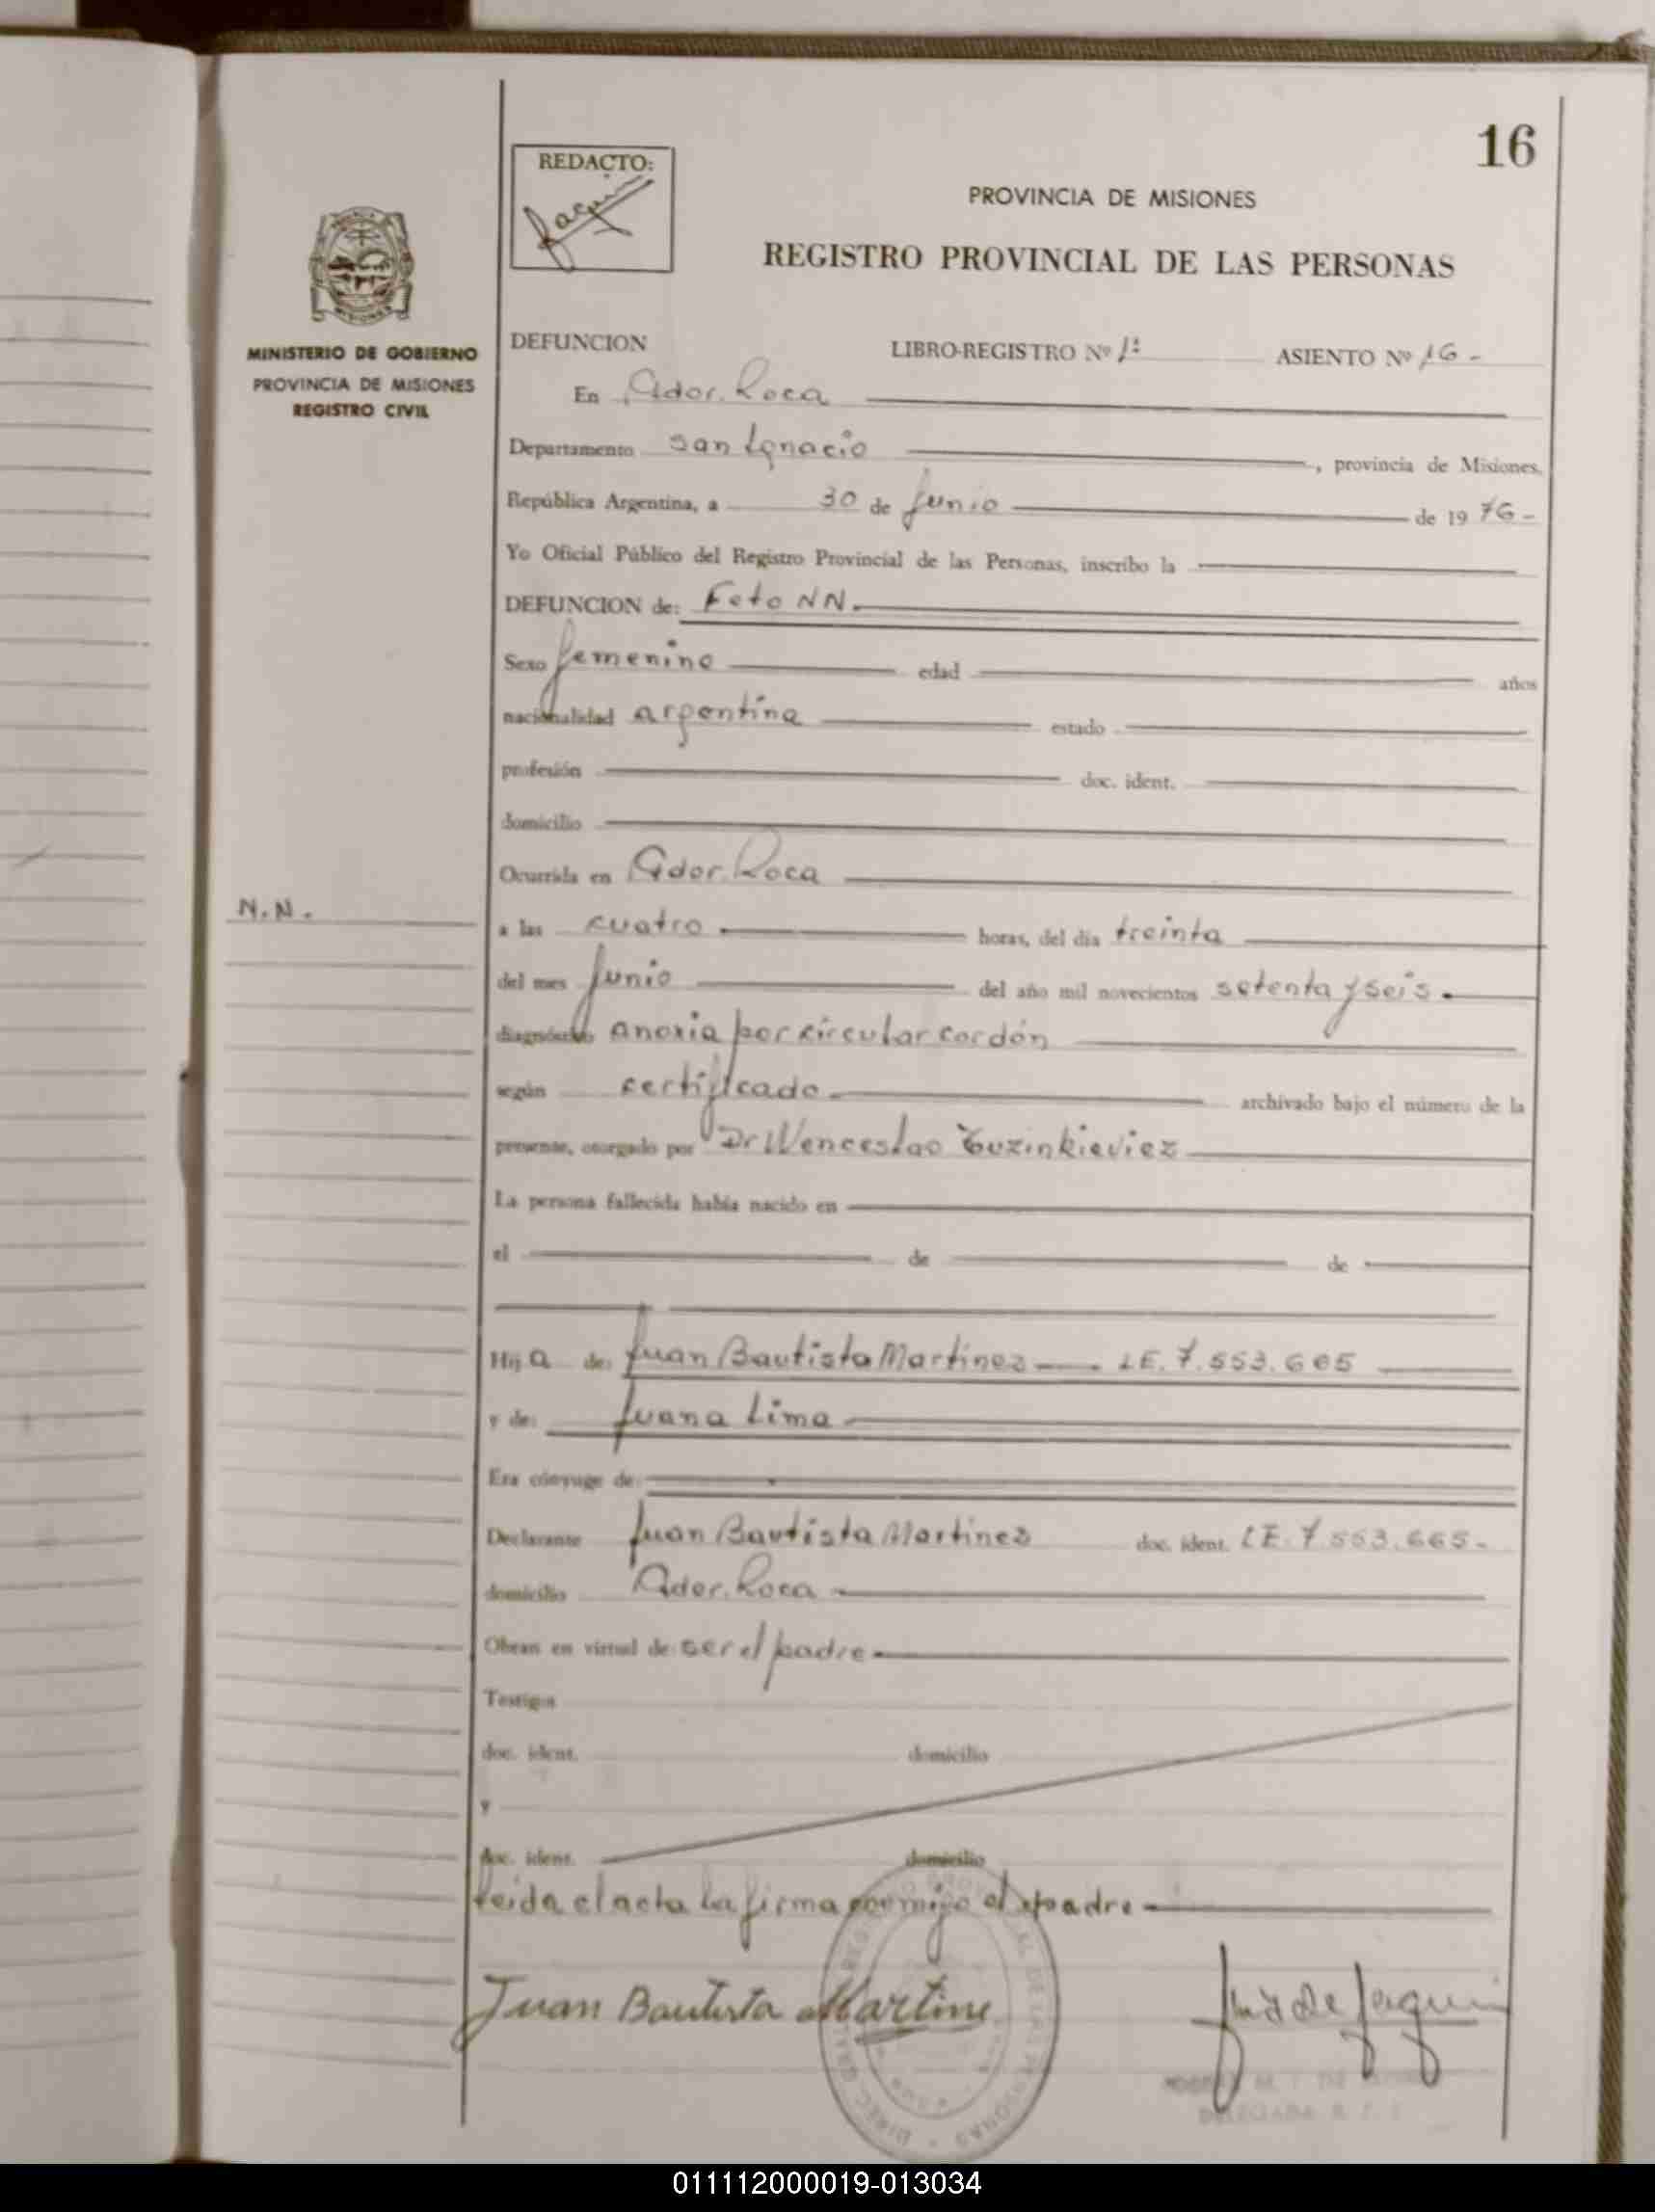 16
REDACTO:
PROVINCIA DE MISIONES
REGISTRO PROVINCIAL DE LAS PERSONAS
MISIONES
MINISTERIO DE GOBIERNO
PROVINCIA DE MISIONES
REGISTRO CIVIL
DEFUNCION LIBRO-REGISTRO Nº 1º ASIENTO Nº 16 -
En Gdor. Roca
Departamento San Ignacio , provincia de Misiones.
República Argentina, a 30 de Junio de 19 76 -
Yo Oficial Público del Registro Provincial de las Personas, inscribo la
DEFUNCION de: Feto NN.
Sexo femenino edad años
nacionalidad argentina estado
profesión doc. ident.
domicilio
Ocurrida en Gdor. Roca
N.N.
a las cuatro horas, del día treinta
del mes Junio del año mil novecientos setenta y seis.
diagnóstico anoxia por circular cordón
según certificado archivado bajo el número de la
presente, otorgado por Dr Wenceslao
La persona fallecida había nacido en
el de de
Hij a de: Juan Bautista Martinez LE. 7.553.665
y de: Juana Lima
Era cónyuge de:
Declarante Juan Bautista Martinez doc. ident. LE. 7.553.665.
domicilio Gdor. Roca
Obran en virtud de: ser el padre
Testigos
doc. ident. domicilio
y
doc. ident. domicilio
leida el acta la firma por mijo el padre
Juan Bautista Martine
011112000019-013034